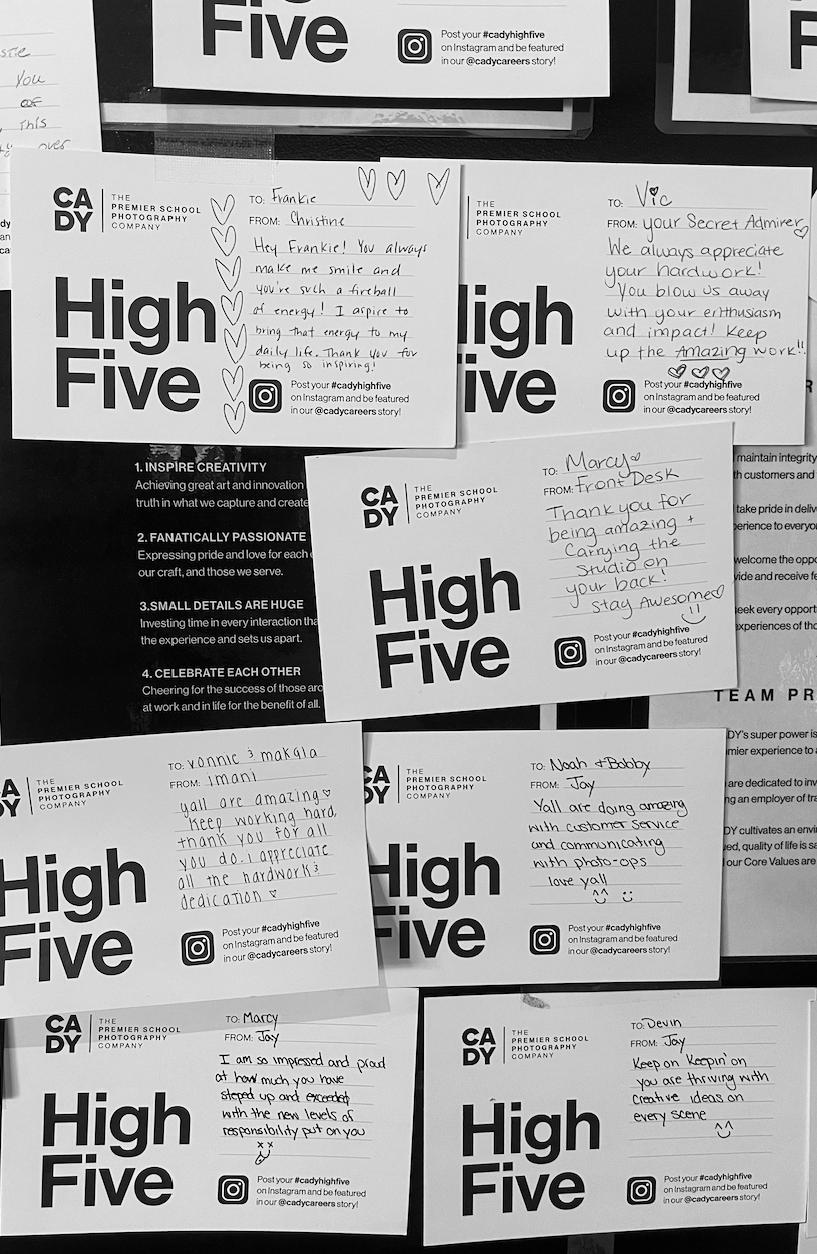 Five
Post your #cadyhighfive
on Instagram and be featured
in our @cadycareers story!
F
You
This
over
CADY
THE
PREMIER SCHOOL
PHOTOGRAPHY
COMPANY
TO: Frankie
FROM: Christine
Hey Frankie! You always
make me smile and
you're such a fireball
of energy! I aspire to
bring that energy to my
daily life. Thank you for
being so inspiring!
High
Five
Post your #cadyhighfive
on Instagram and be featured
in our @cadycareers story!
THE
PREMIER SCHOOL
PHOTOGRAPHY
COMPANY
TO: Vic
FROM: your Secret Admirer
We always appreciate
your hardwork!
You blow us away
with your enthusiasm
and impact! Keep
up the Amazing work!!
High
Five
Post your #cadyhighfive
on Instagram and be featured
in our @cadycareers story!
1. INSPIRE CREATIVITY
Achieving great art and innovation
truth in what we capture and create
2. FANATICALLY PASSIONATE
Expressing pride and love for each
our craft, and those we serve.
3.SMALL DETAILS ARE HUGE
Investing time in every interaction
the experience and sets us apart.
4. CELEBRATE EACH OTHER
Cheering for the success of those
at work and in life for the benefit of all.
CADY
THE
PREMIER SCHOOL
PHOTOGRAPHY
COMPANY
TO: Marcy
FROM: Front Desk
Thank you for
being amazing +
Carrying the
Studio on
your back!
Stay Awesome
High
Five
Post your #cadyhighfive
on Instagram and be featured
in our @cadycareers story!
maintain integrity
customers and
take pride in
to
welcome the
and receive
seek every
of
TEAM PR
DY's super power is
experience to
are dedicated to
an employer of
DY cultivates an
quality of life is
our Core Values are
DY
THE
PREMIER SCHOOL
PHOTOGRAPHY
COMPANY
TO: vonnie & makala
FROM: Imani
yall are amazing
keep working hard,
thank you for all
you do. i appreciate
all the hardwork &
dedication
High
Five
Post your #cadyhighfive
on Instagram and be featured
in our @cadycareers story!
CADY
THE
PREMIER SCHOOL
PHOTOGRAPHY
COMPANY
TO: Noah + Bobby
FROM: Jay
Yall are doing amazing
with customer service
and communicating
with photo-ops
love yall
High
Five
Post your #cadyhighfive
on Instagram and be featured
in our @cadycareers story!
CADY
THE
PREMIER SCHOOL
PHOTOGRAPHY
COMPANY
TO: Marcy
FROM: Jay
I am so impressed and proud
at how much you have
steped up and exceeded
with the new levels of
responsibility put on you
High
Five
Post your #cadyhighfive
on Instagram and be featured
in our @cadycareers story!
CADY
THE
PREMIER SCHOOL
PHOTOGRAPHY
COMPANY
TO: Devin
FROM: Jay
Keep on Keepin' on
you are thriving with
creative ideas on
every scene
High
Five
Post your #cadyhighfive
on Instagram and be featured
in our @cadycareers story!